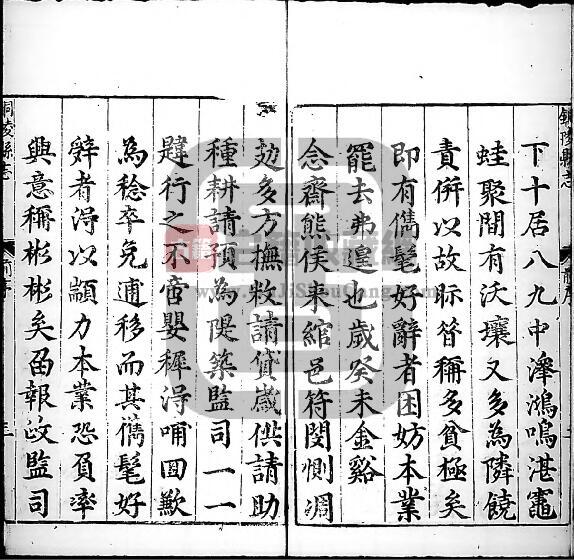 銅陵縣志
前序
二
下十居八九中澤鴻嗚湛竈
蛙聚間有沃壤又多為隣饒
責併以故眎昝稱多貧極矣
即有儁髦好辭者困妨本業
罷去弗遑也歲癸未金谿
念齋熊侯来綰邑符閔惻凋
攰多方撫敉請貸歲供請助
種耕請預為隄築監司一一
韙行之不啻嬰穉淂哺囬歉
為稔卒免逋移而其儁髦好
辤者淂以顓力本業恐負率
興意稱彬彬矣畱報政監司
銅陵縣志
前序
三